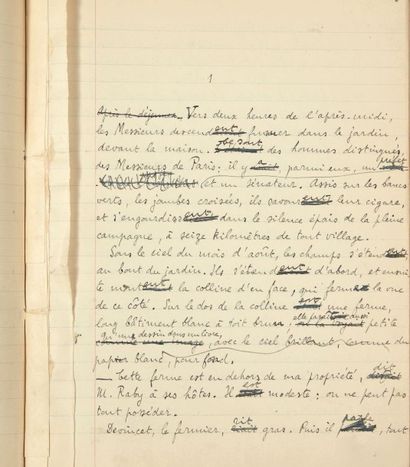 1
Après le déjeuner. Vers deux heures de l'après-midi,
les Messieurs descendent fumer dans le jardin,
devant la maison. Ce sont des hommes distingués,
des Messieurs de Paris : il y a, parmi eux, un préfet
et un sénateur. Assis sur les bancs
verts, les jambes croisées, ils savourent leur cigare,
et s'engourdissent dans le silence épais de la pleine
campagne, à seize kilomètres de tout village.
Sous le ciel du mois d'août, les champs s'étendent,
au bout du jardin. Ils s'étendent d'abord, et ensuite
montent la colline d'en face, qui ferme la vue
de ce côté. Sur le dos de la colline est une ferme,
long bâtiment blanc à toit brun, elle paraît aussi petite
qu'une dessin dans un livre,
comme une image, avec le ciel brillant, comme du
papier blanc, pour fond.
— Cette ferme est en dehors de ma propriété, dit
M. Raby à ses hôtes. Il est modeste : on ne peut pas
tout posséder.
le fermier, rit gras. Puis il parle, tout